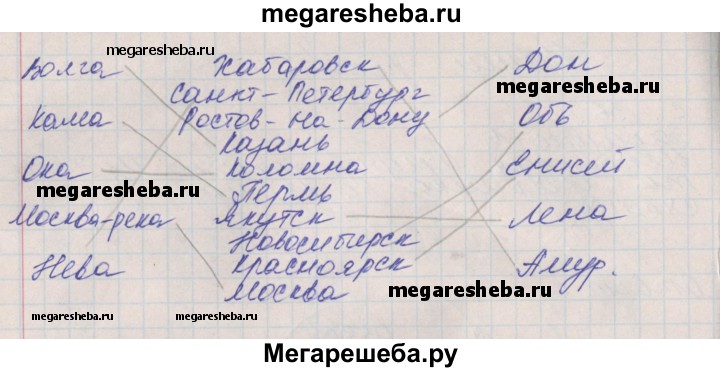 megaresheba.ru
megaresheba.ru
Волга Хабаровск Дон
megaresheba.ru
Санкт-Петербург
Кама Ростов-на-Дону Обь
Казань
Ока Коломна Енисей
megaresheba.ru
Пермь
Москва-река Якутск Лена
Новосибирск
Нева Красноярск Амур.
Москва megaresheba.ru
megaresheba.ru megaresheba.ru
Мегарешеба.ру